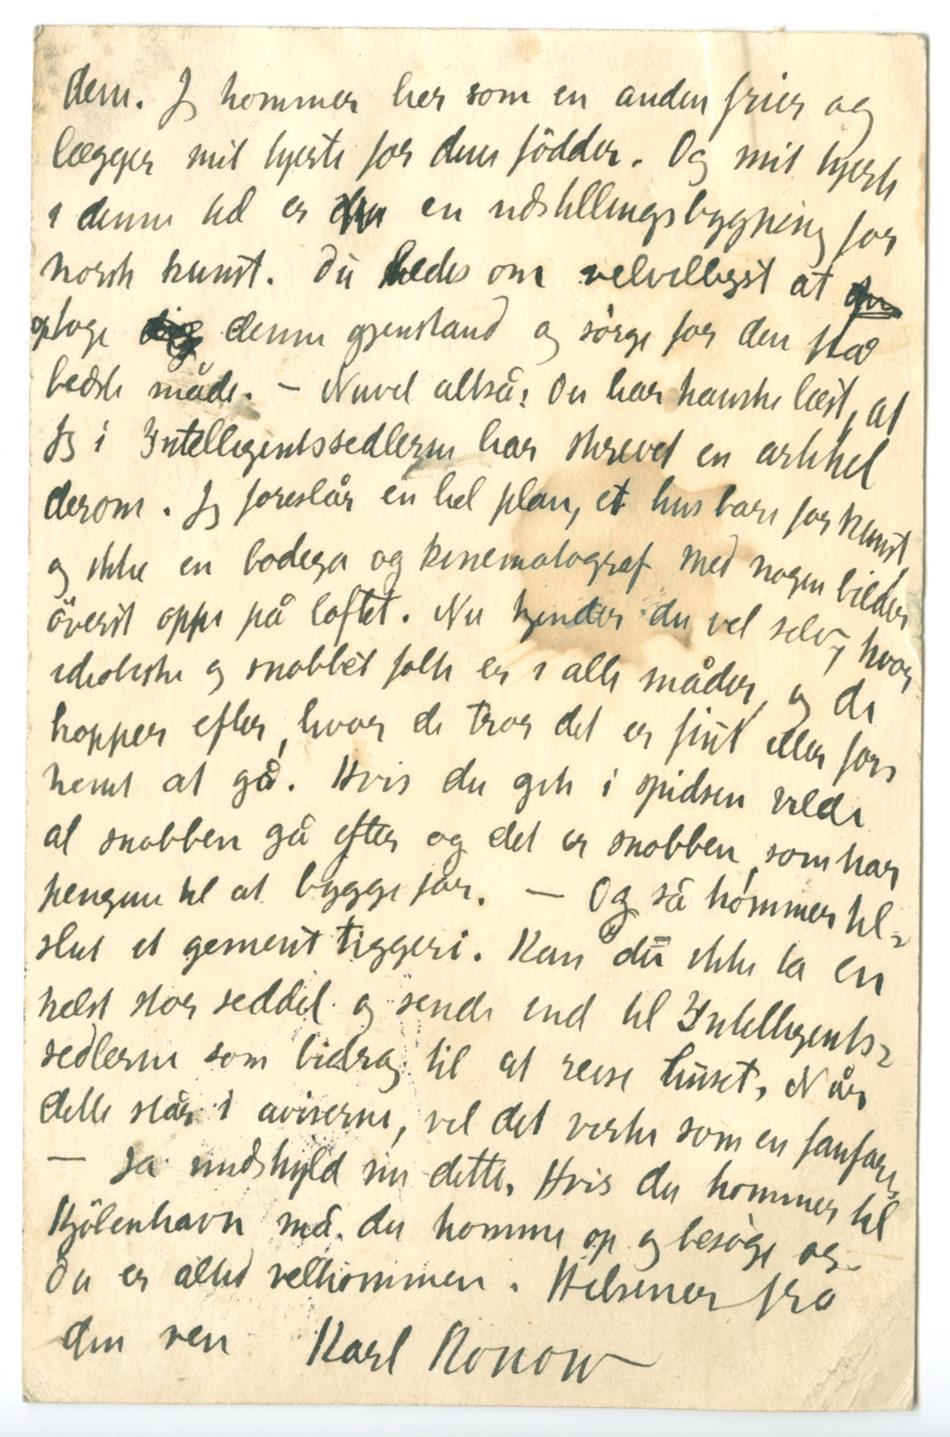 dem. Jg kommer her som en anden frier og
lægger mit hjerte for dine födder. Og mit hjerte
i denne tid er en udstillingsbygning for
norsk kunst. Du bedes om velvilligst at
optage denne gjenstand og sörge for den på
bedste måde. – Nuvel altså: Du har kanske læst, at
Jg i Intelligentssedlerne har skrevet en artikel
derom. Jg foreslår en hel plan, et hus bare for kunst,
og ikke en bodega og kinematograf med nogen bilder
överst oppe på loftet. Nu kjender du vel selv, hvor
idiotiske og snobbet folk er i alle måder, og de
hopper efter, hvor de tror det er fint eller for-
nemt at gå. Hvis du gik i spidsen vilde
al snobben gå efter og det er snobben, som har
pengene til at bygge for. – Og så kommer til-
slut et gement tiggeri. Kan du ikke ta en
helst stor seddel og sende ind til Intelligents-
sedlerne som bidrag til at reise huset. Når
dette står i aviserne, vil det virke som en fanfare,
– Ja undskyld nu dette. Hvis du kommer til
Kjöbenhavn må du komme op og besöge os.
Du er altid velkommen. Hilsener fra
din ven Karl Konow